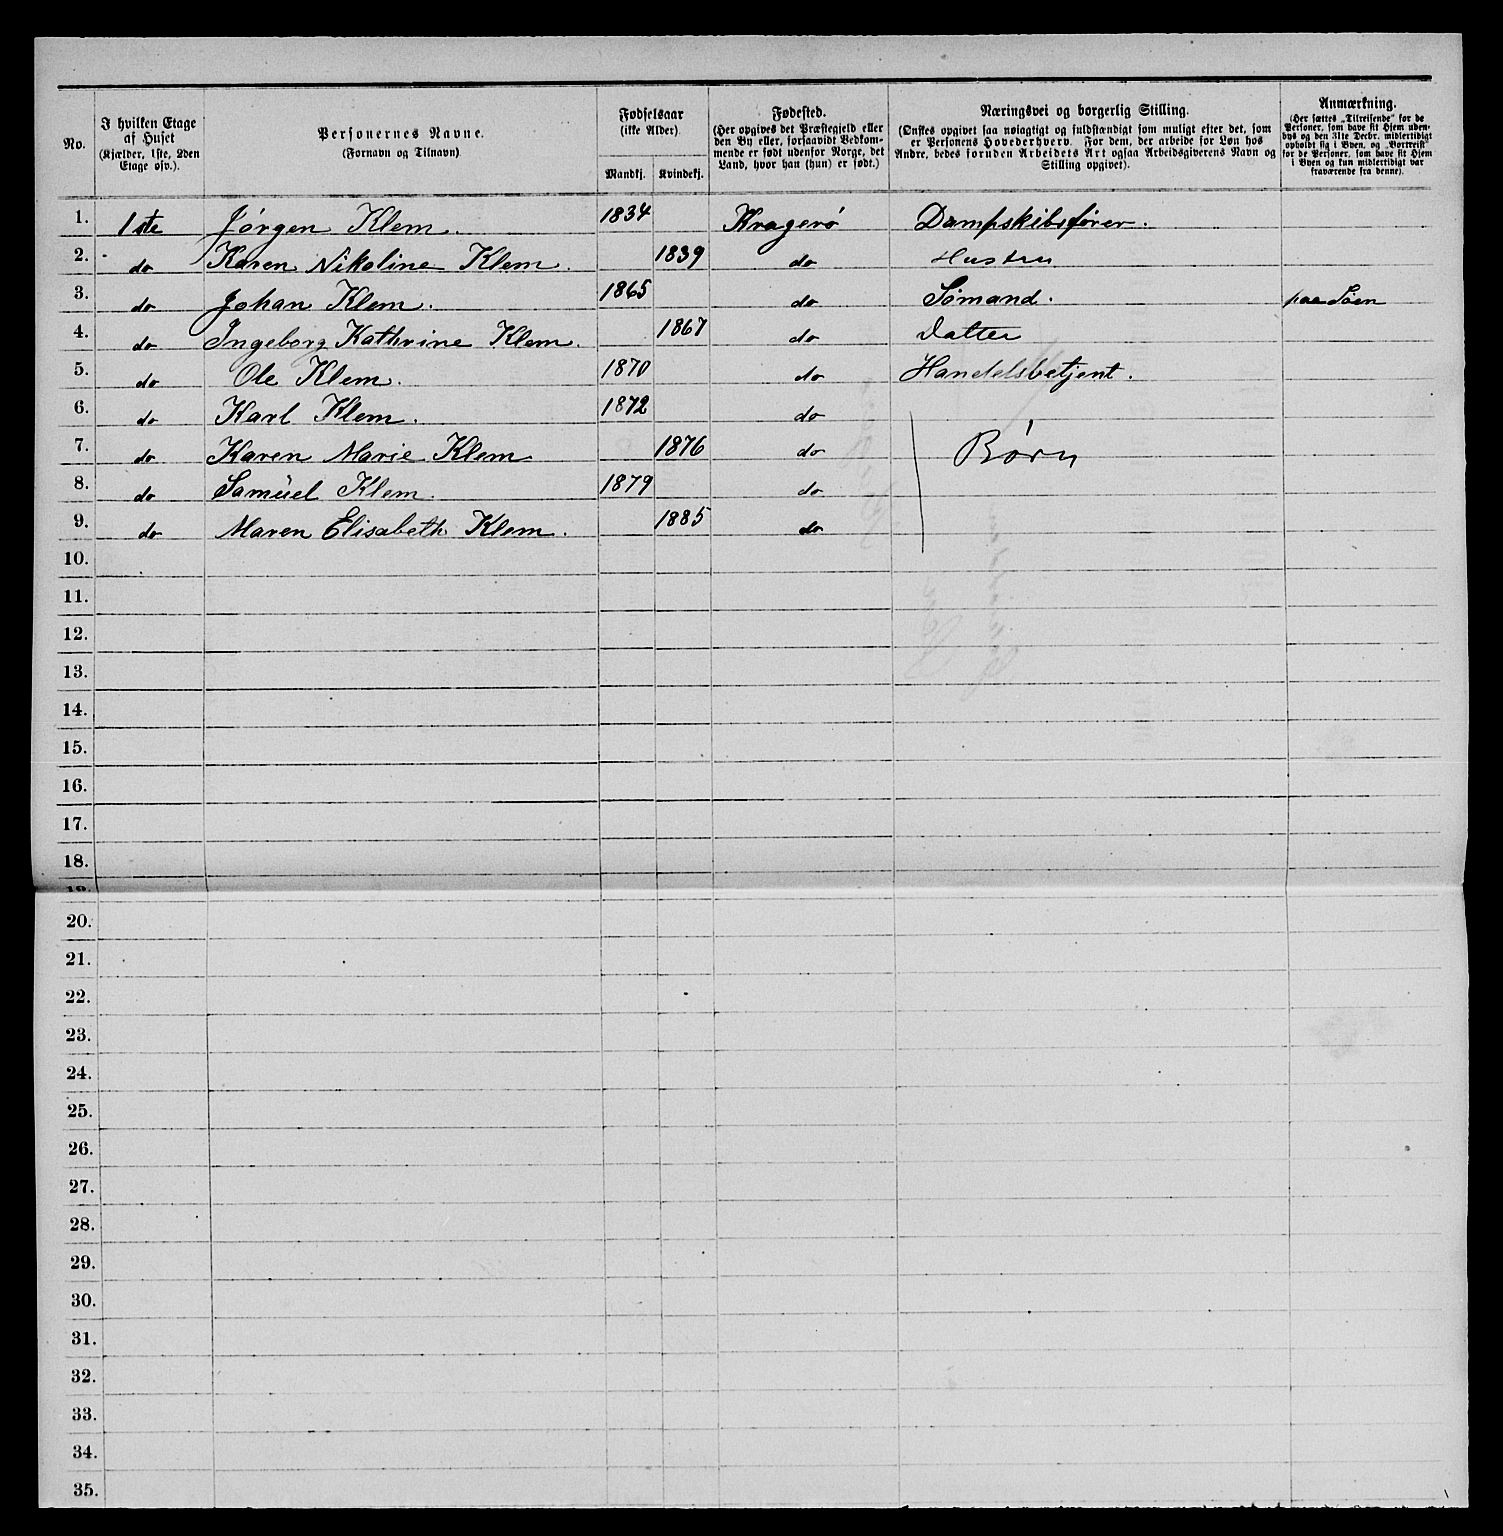 No.
I hvilken Etage af Huset (Kjælder, 1ste, 2den Etage osv.).
Personernes Navne. (Fornavn og Tilnavn)
Fødselsaar (ikke Alder).
Mandkj. Kvindekj.
Fødested. (Her opgives det Præstegjeld eller den By eller, forsaavidt Vedkommende er født udenfor Norge, det Land, hvor han (hun) er født.)
Næringsvei og borgerlig Stilling. (Ønskes opgivet saa nøiagtigt og fuldstændigt som muligt efter det, som er Personens Hovederhverv. For dem, der arbeide for Løn hos Andre, bedes foruden Arbeidets Art ogsaa Arbeidsgiverens Navn og Stilling opgivet).
Anmærkning. (Her sættes „Tilreisende“ for de Personer, som have sit Hjem udenbys og den 31te Decbr. midlertidigt opholdt sig i Byen, og „Bortreist“ for de Personer, som have sit Hjem i Byen og kun midlertidigt var fraværende fra denne).
1. 1ste Jörgen Klem. 1834 Kragerö Dampskibsförer.
2. do Karen Nikoline Klem. 1839 do Hustru
3. do Johan Klem. 1865 do Sömand. paa Söen
4. do Ingeborg Kathrine Klem. 1867 do Datter
5. do Ole Klem. 1870 do Handelsbetjent.
6. do Karl Klem. 1872 do
7. do Karen Marie Klem 1876 do Børn
8. do Samüel Klem. 1879 do
9. do Maren Elisabeth Klem. 1885 do
10.
11.
12.
13.
14.
15.
16.
17.
18.
19.
20.
21.
22.
23.
24.
25.
26.
27.
28.
29.
30.
31.
32.
33.
34.
35.